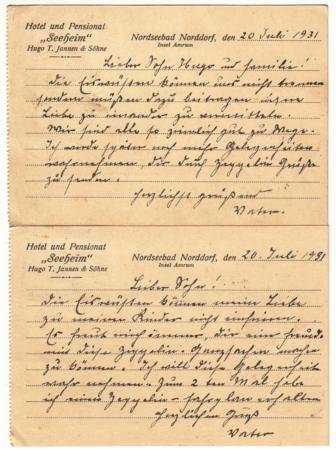 Hotel und Pensionat
„Seeheim"
Hugo T. Jannen & Söhne
Nordseebad Norddorf, den 20 Juli 1931
Insel Amrum
Lieber Sohn Hugo u Familie!
Die Eiswüsten können uns nicht trennen
sondern müssen dazu beitragen unsre
Liebe zu einander zu
Wir sind alle so ziemlich gut zu Wege.
Ich werde später noch mehr Gelegenheiten
wahrnehmen, Dir durch Zeppelin Grüße
zu senden.
Herzlichst grüßend
Vater.
Hotel und Pensionat
„Seeheim"
Hugo T. Jannen & Söhne
Nordseebad Norddorf, den 20. Juli 1931
Insel Amrum
Lieber Sohn!
Die Eiswüsten können meine Liebe
zu meinen Kinder nicht einfrieren.
Es freut mich immer, dir eine Freude
mit diese Zeppelin- machen
zu können. Ich will diese Gelegenheit
wahr nehmen. Zum 2 ten Mal habe
ich einen Zeppelin-fahrplan erhalten
Herzlichen Gruß
Vater